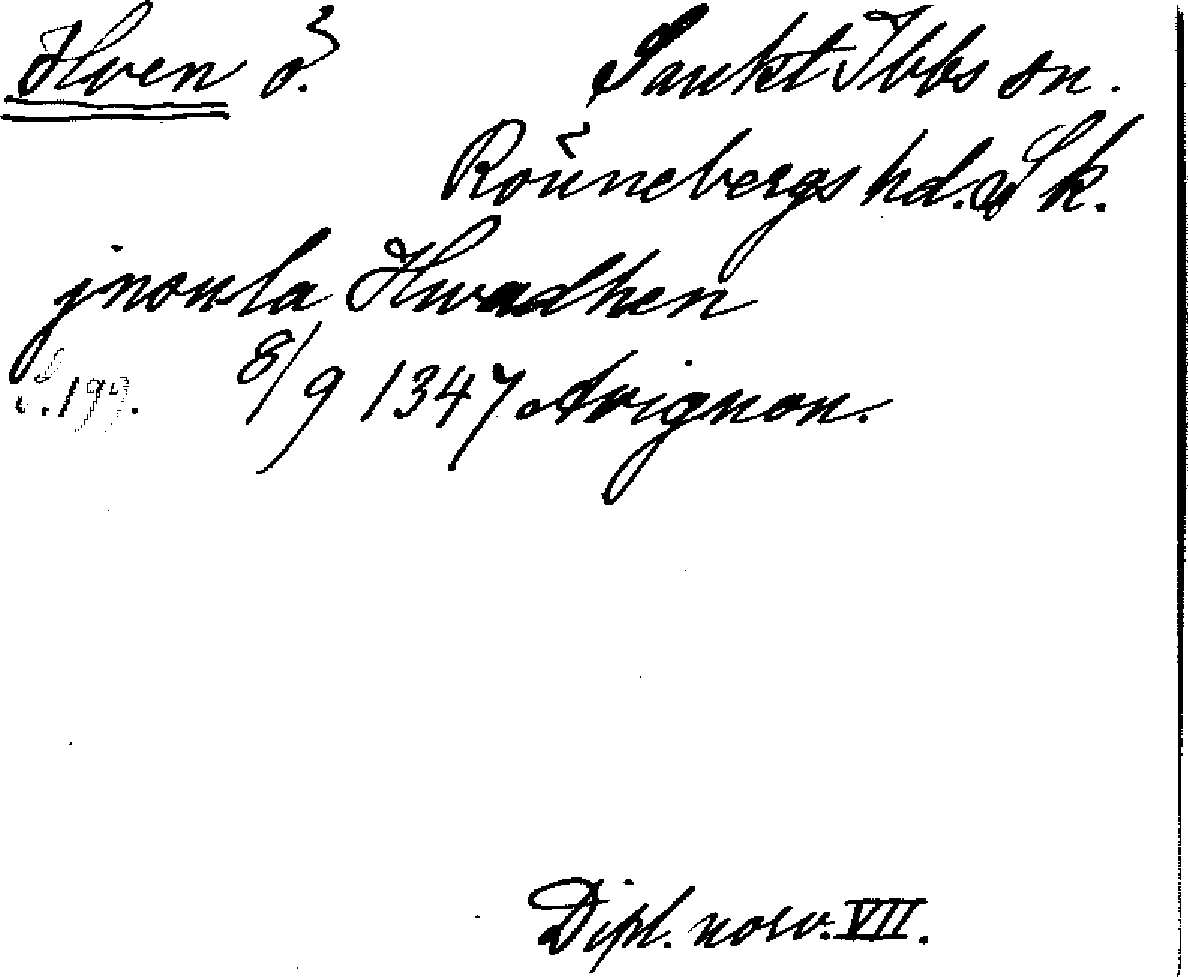 Hven ö.
Sankt Ibbs sn.
Rönnebergs hd. Sk.
jnsula Hwadhen
s. 199. 8/9 1347 Avignon.
Dipl. norv. VII.